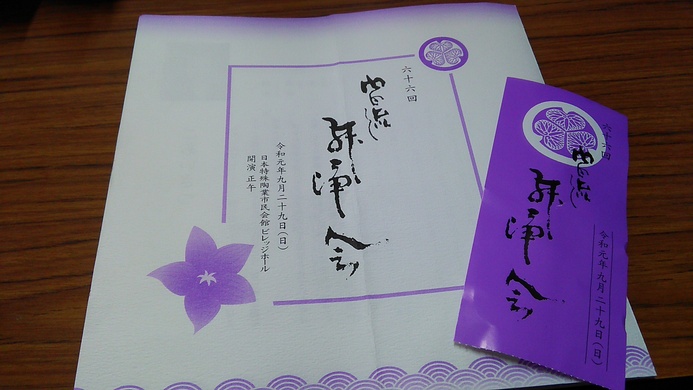 六十六回
流
会
令和元年九月二十九日(日)
日本特殊陶業市民会館ビレッジホール
開演 正午
六十六回
流
会
令和元年九月二十九日(日)